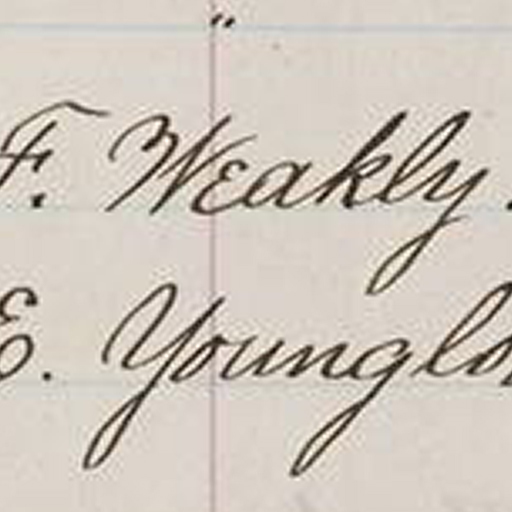 "
F. Weakly.
E. Younglo